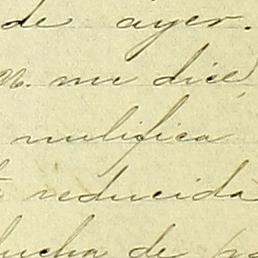 de ayer.
me dice
nulifica
reducida
lucha de